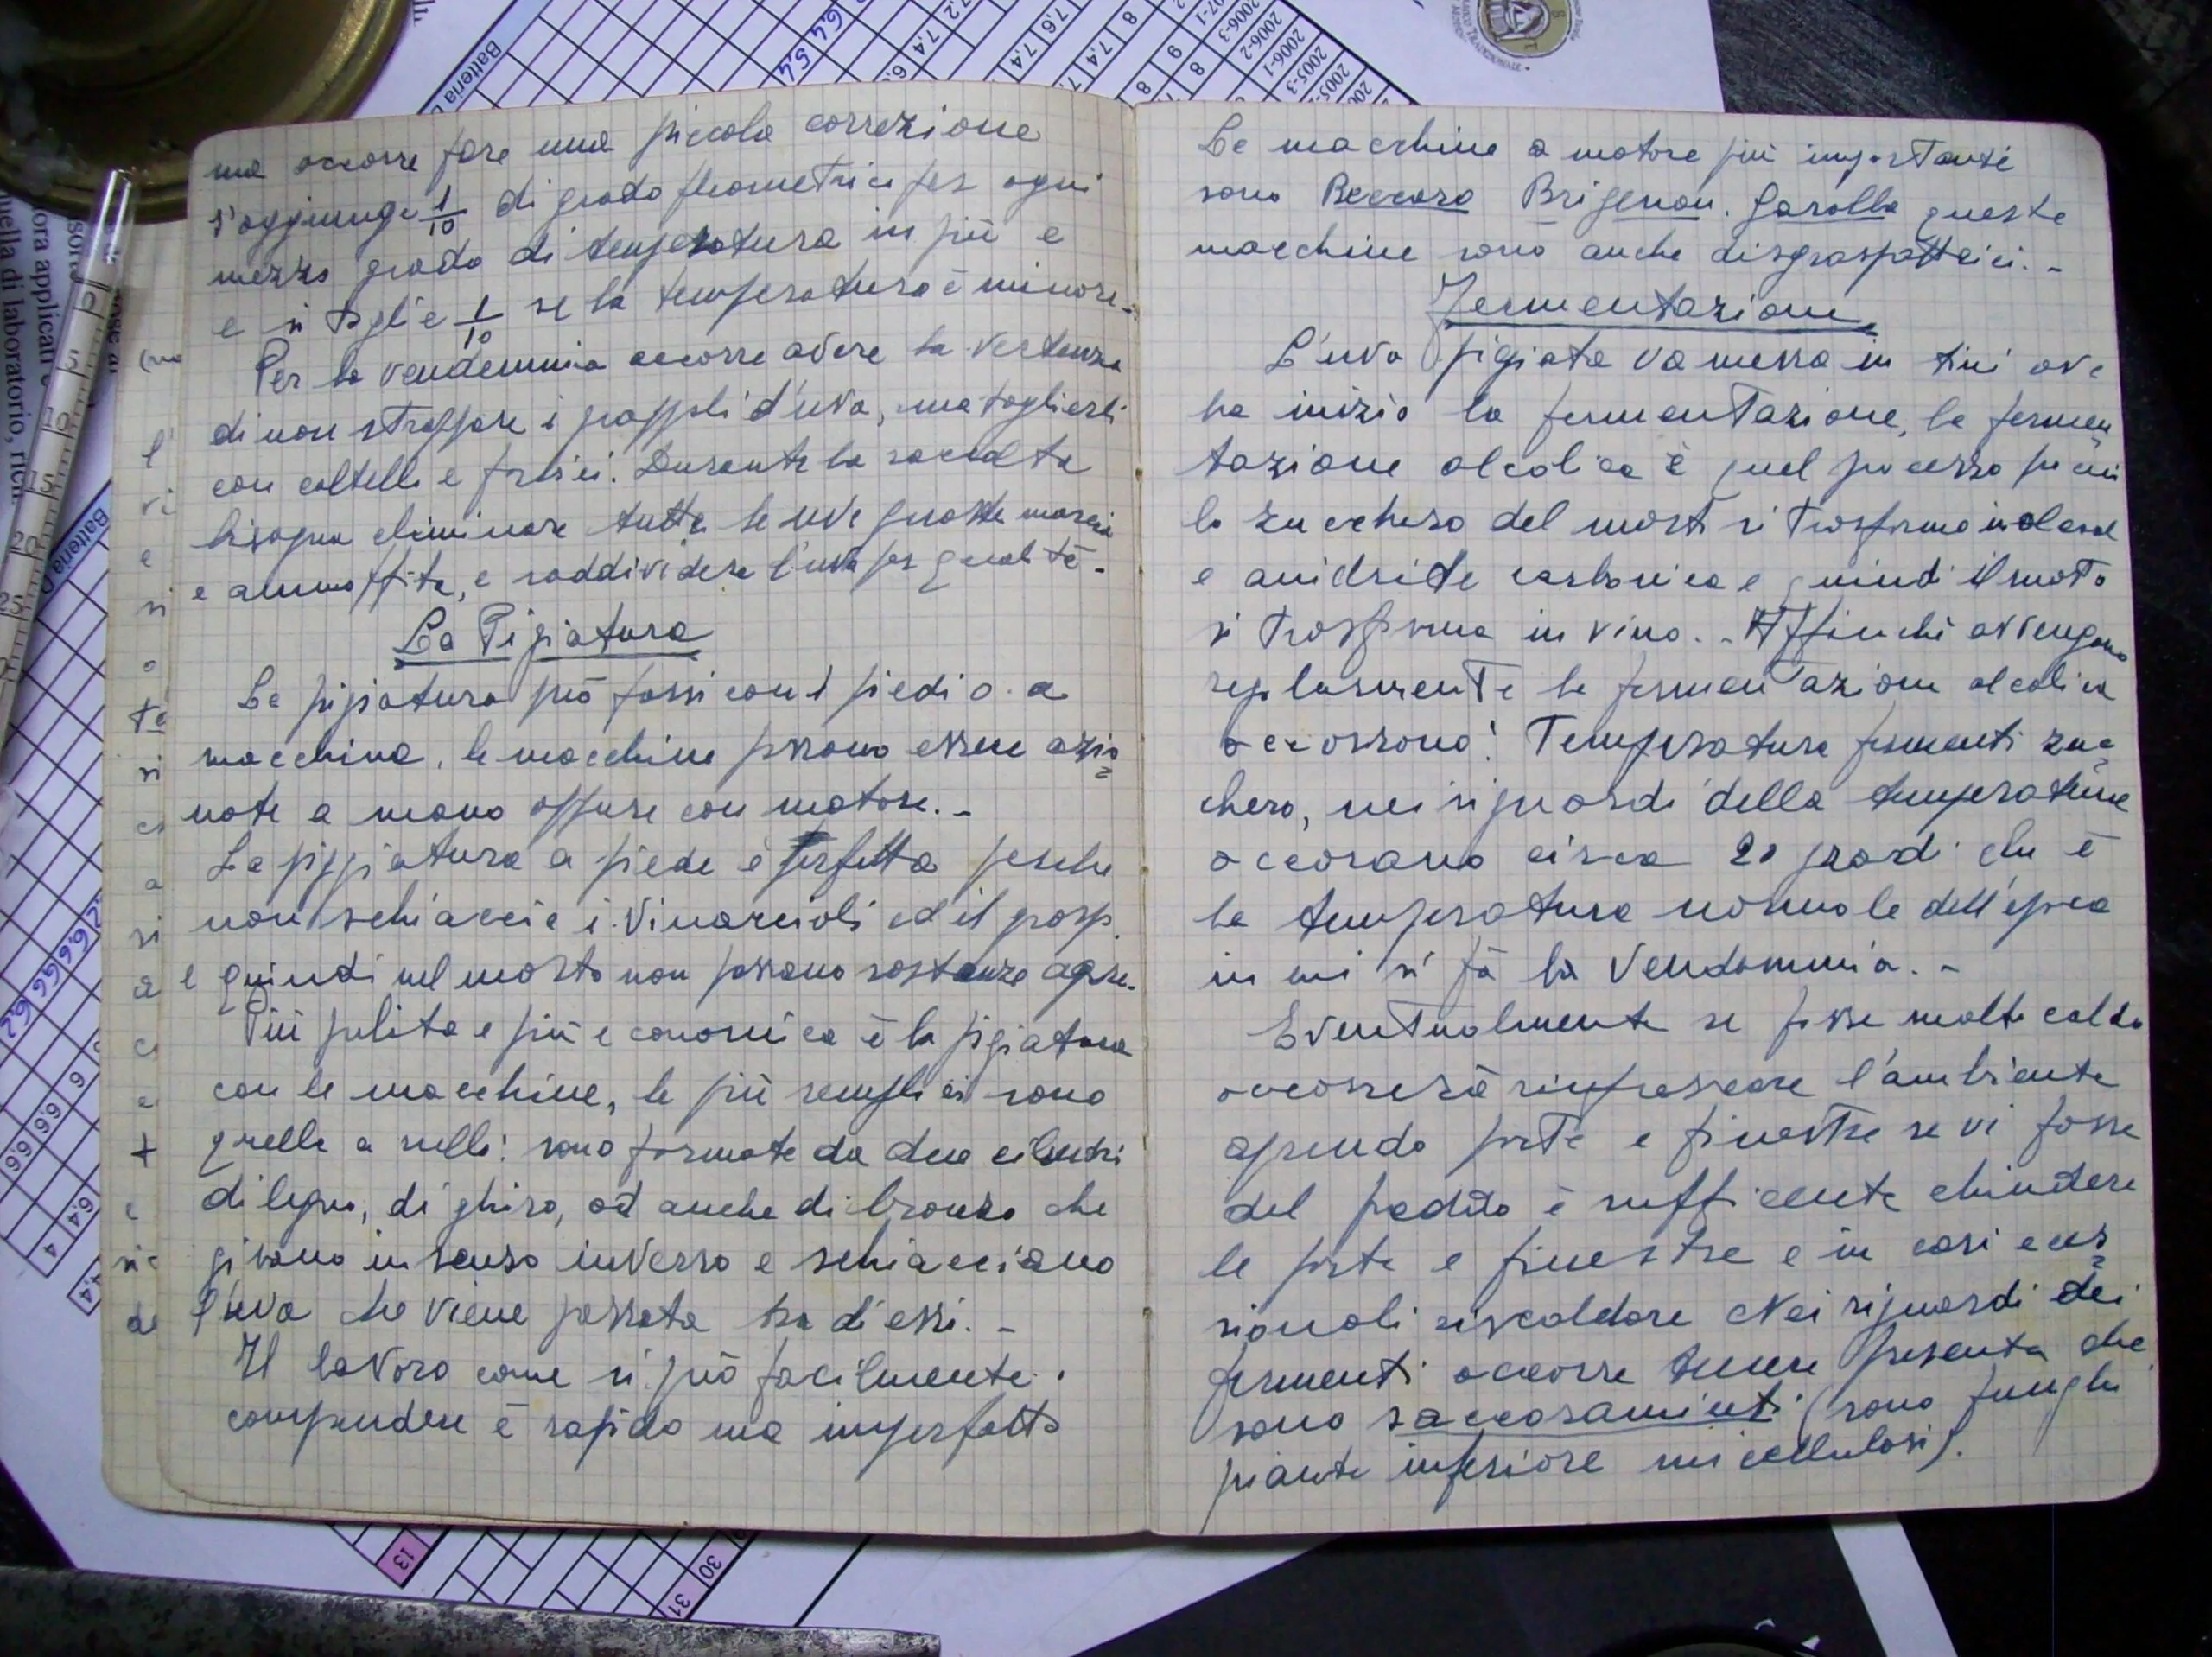 ma occorre fare una piccola correzione
s'aggiunge 1/10 di grado gleometrico per ogni
mezzo grado di temperatura in più e
e si toglie 1/10 se la temperatura è minore.-
Per la vendemmia occorre avere la
di non strappare i grappoli d'uva, ma toglierli
con coltelli e forbici. Durante la raccolta
bisogna eliminare tutte le uve guaste marcie
e ammuffite, e soddividere l'uva per qualità.-
La Pigiatura
La pigiatura può farsi con i piedi o a
macchina, le macchine possono essere azio=
nate a mano oppure con motore.-
La pigiatura a piede è perfetta perche
non schiaccia i vinaccioli ed il grasp.
e quindi nel mosto non passano sostanze agre.
Più pulita e più economica è la pigiatura
con le macchine, le più semplici sono
quelle a rulli: sono formate da due cilindri
di legno, di ghisa, od anche di bronzo che
girano in senso inverso e schiacciano
l'uva che viene passata tra di essi.-
Il lavoro come si può facilmente
comprendere è rapido ma imperfetto
Le macchine a motore più importanti
sono Beccaro Garolla queste
macchine sono anche disgraspatrici.-
Fermentazione
L'uva pigiata va messa in tini ove
ha inizio la fermentazione, la fermen
tazione alcolica è quel processo per cui
lo zucchero del mosto si trasforma in alcool
e anidride carbonica e quindi il mosto
si trasforma in vino.- Affinchè avvengano
regolarmente la fermentazione alcolica
occorrono: Temperatura fermenti zuc=
chero, nei riguardi della temperatura
occorrano circa 20 gradi che è
la temperatura normale dell'epoca
in cui si fà la Vendemmia.-
Eventualmente se fosse molto caldo
occorrerà rinfrescare l'ambiente
aprendo porte e finestre se vi fosse
del freddo è sufficente chiudere
le porte e finestre e in casi ecce=
sionali riscaldare Nei riguardi dei
fermenti occorre tenere presente che
sono saccaromiceti (sono funghi
piante inferiore unicellulosi).
Batteria
6,4 5,4
2006-3
2006-2
2006-1
2005-3
0
5
10
15
20
25
ora applicati
uella di laboratorio,
13
30
31